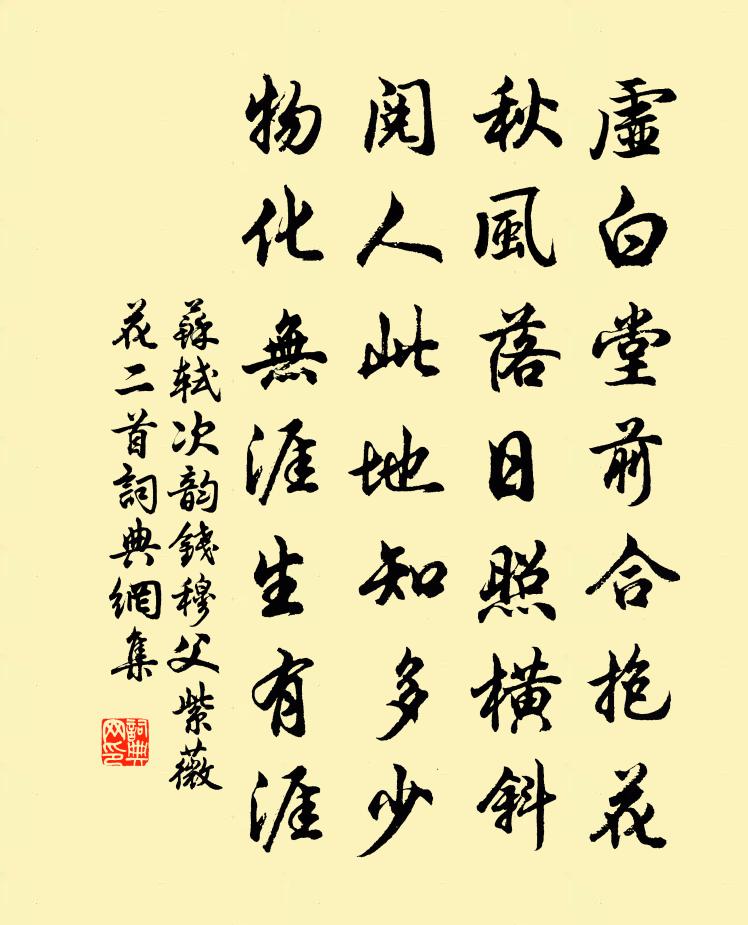 虛白堂前合抱花
秋風落日照橫斜
閱人此地知多少
物化無涯生有涯
蘇軾次韵錢穆父紫薇
花二首詞典網集
詞典
网印